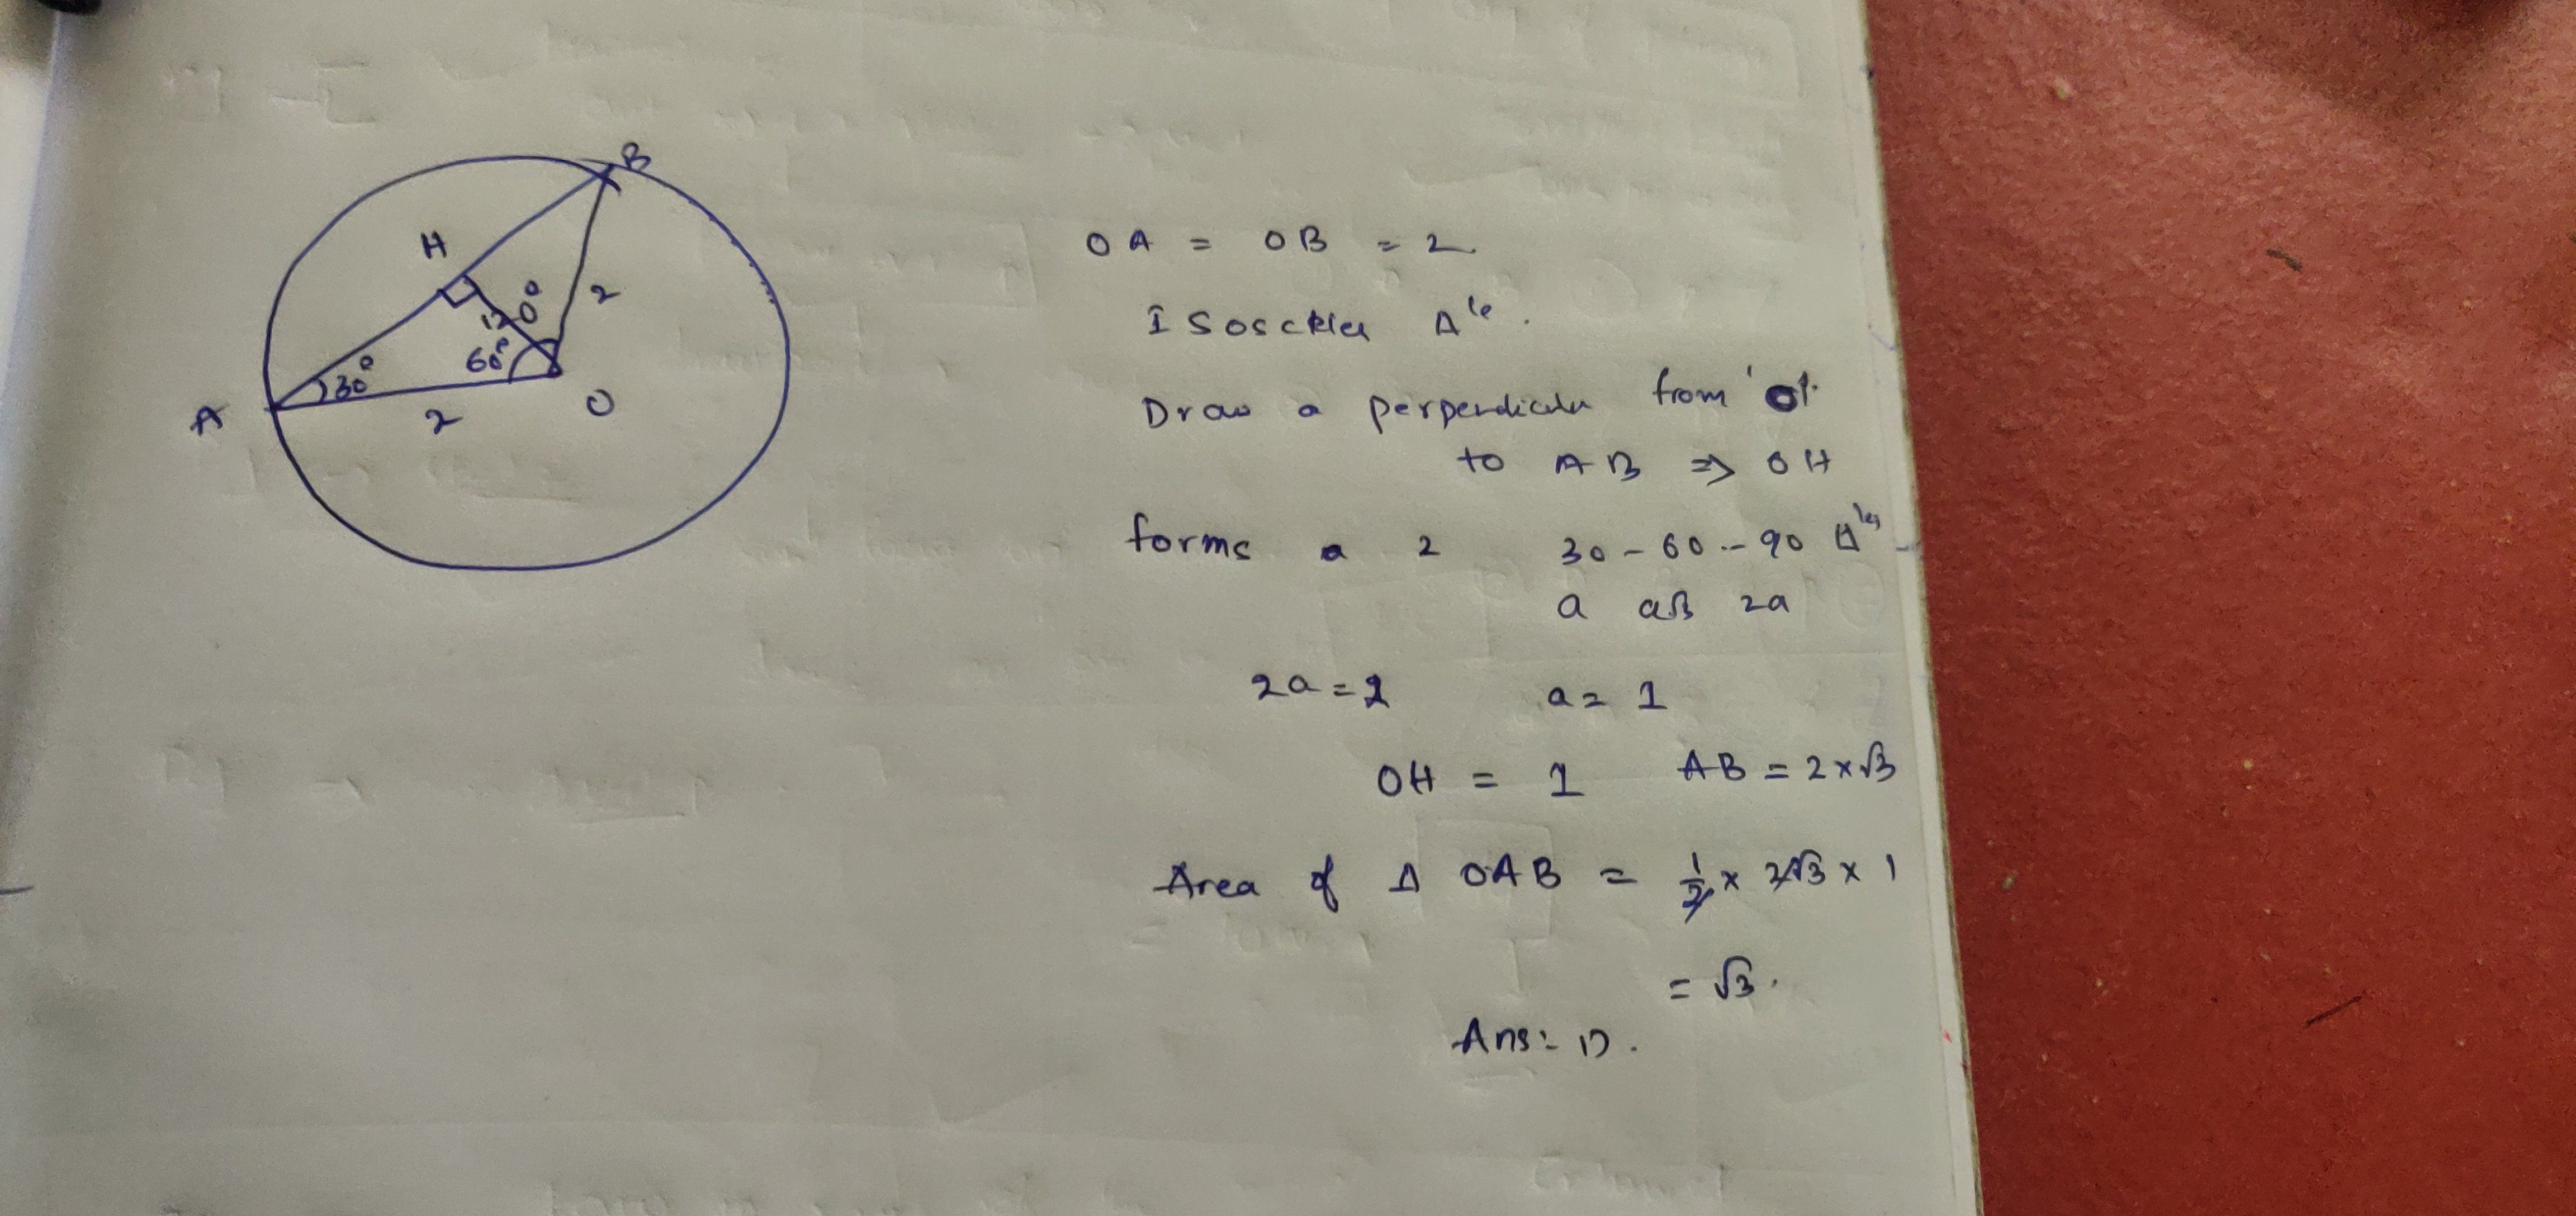 B
H
120°
2
60°
30°
A
2
O
OA = OB = 2
Isosckles Δle.
Draw a perpendicular from 'O'.
to AB ⇒ OH
forms a 2 30-60-90 Δles
a a√3 2a
2a = 2 a = 1
OH = 1 AB = 2×√3
Area of Δ OAB = 1/2 × 2√3 × 1
= √3.
Ans:- D.